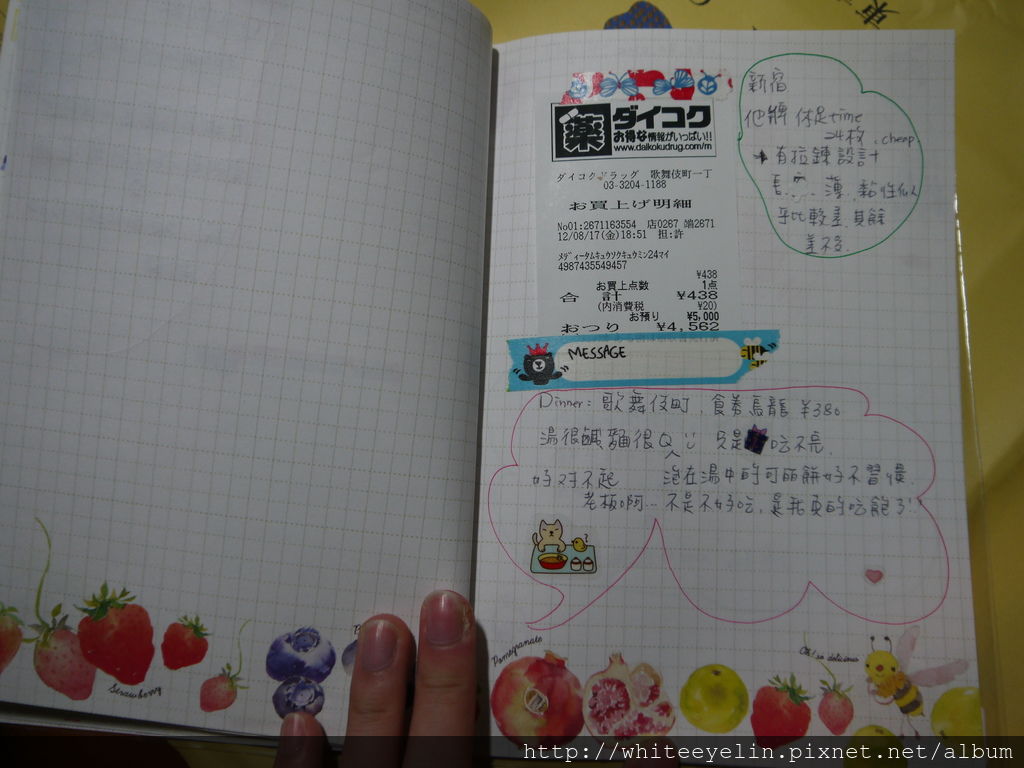 ダイコク
お得な情報がいっぱい!!
薬
www.daikokudrug.com/m
ダイコクドラッグ 歌舞伎町一丁
03-3204-1188
お買上げ明細
No01:2671163554 店0267 端2671
12/08/17(金)18:51 担:許
ﾒﾃﾞｨｰﾀﾑｷｭｳｿｸｷｭｳﾐﾝ24ﾏｲ
4987435549457
¥438
お買上点数 1点
合 計 ¥438
(内消費税 ¥20)
お預り ¥5,000
おつり ¥4,562
新宿
他牌 休足time
24枚, cheap
有拉鍊設計
薄, 黏性似
乎比較差, 其餘
差不多.
MESSAGE
Dinner: 歌舞伎町, 食券烏龍 ¥380
湯很鹹麵很Q 只是 吃不完.
好对不起 泡在湯中的可麗餅好不習慣.
老板啊... 不是不好吃, 是我真的吃飽了!
Strawberry
Pomegranate
Oh! so delicious
http://whiteeyelin.pixnet.net/album